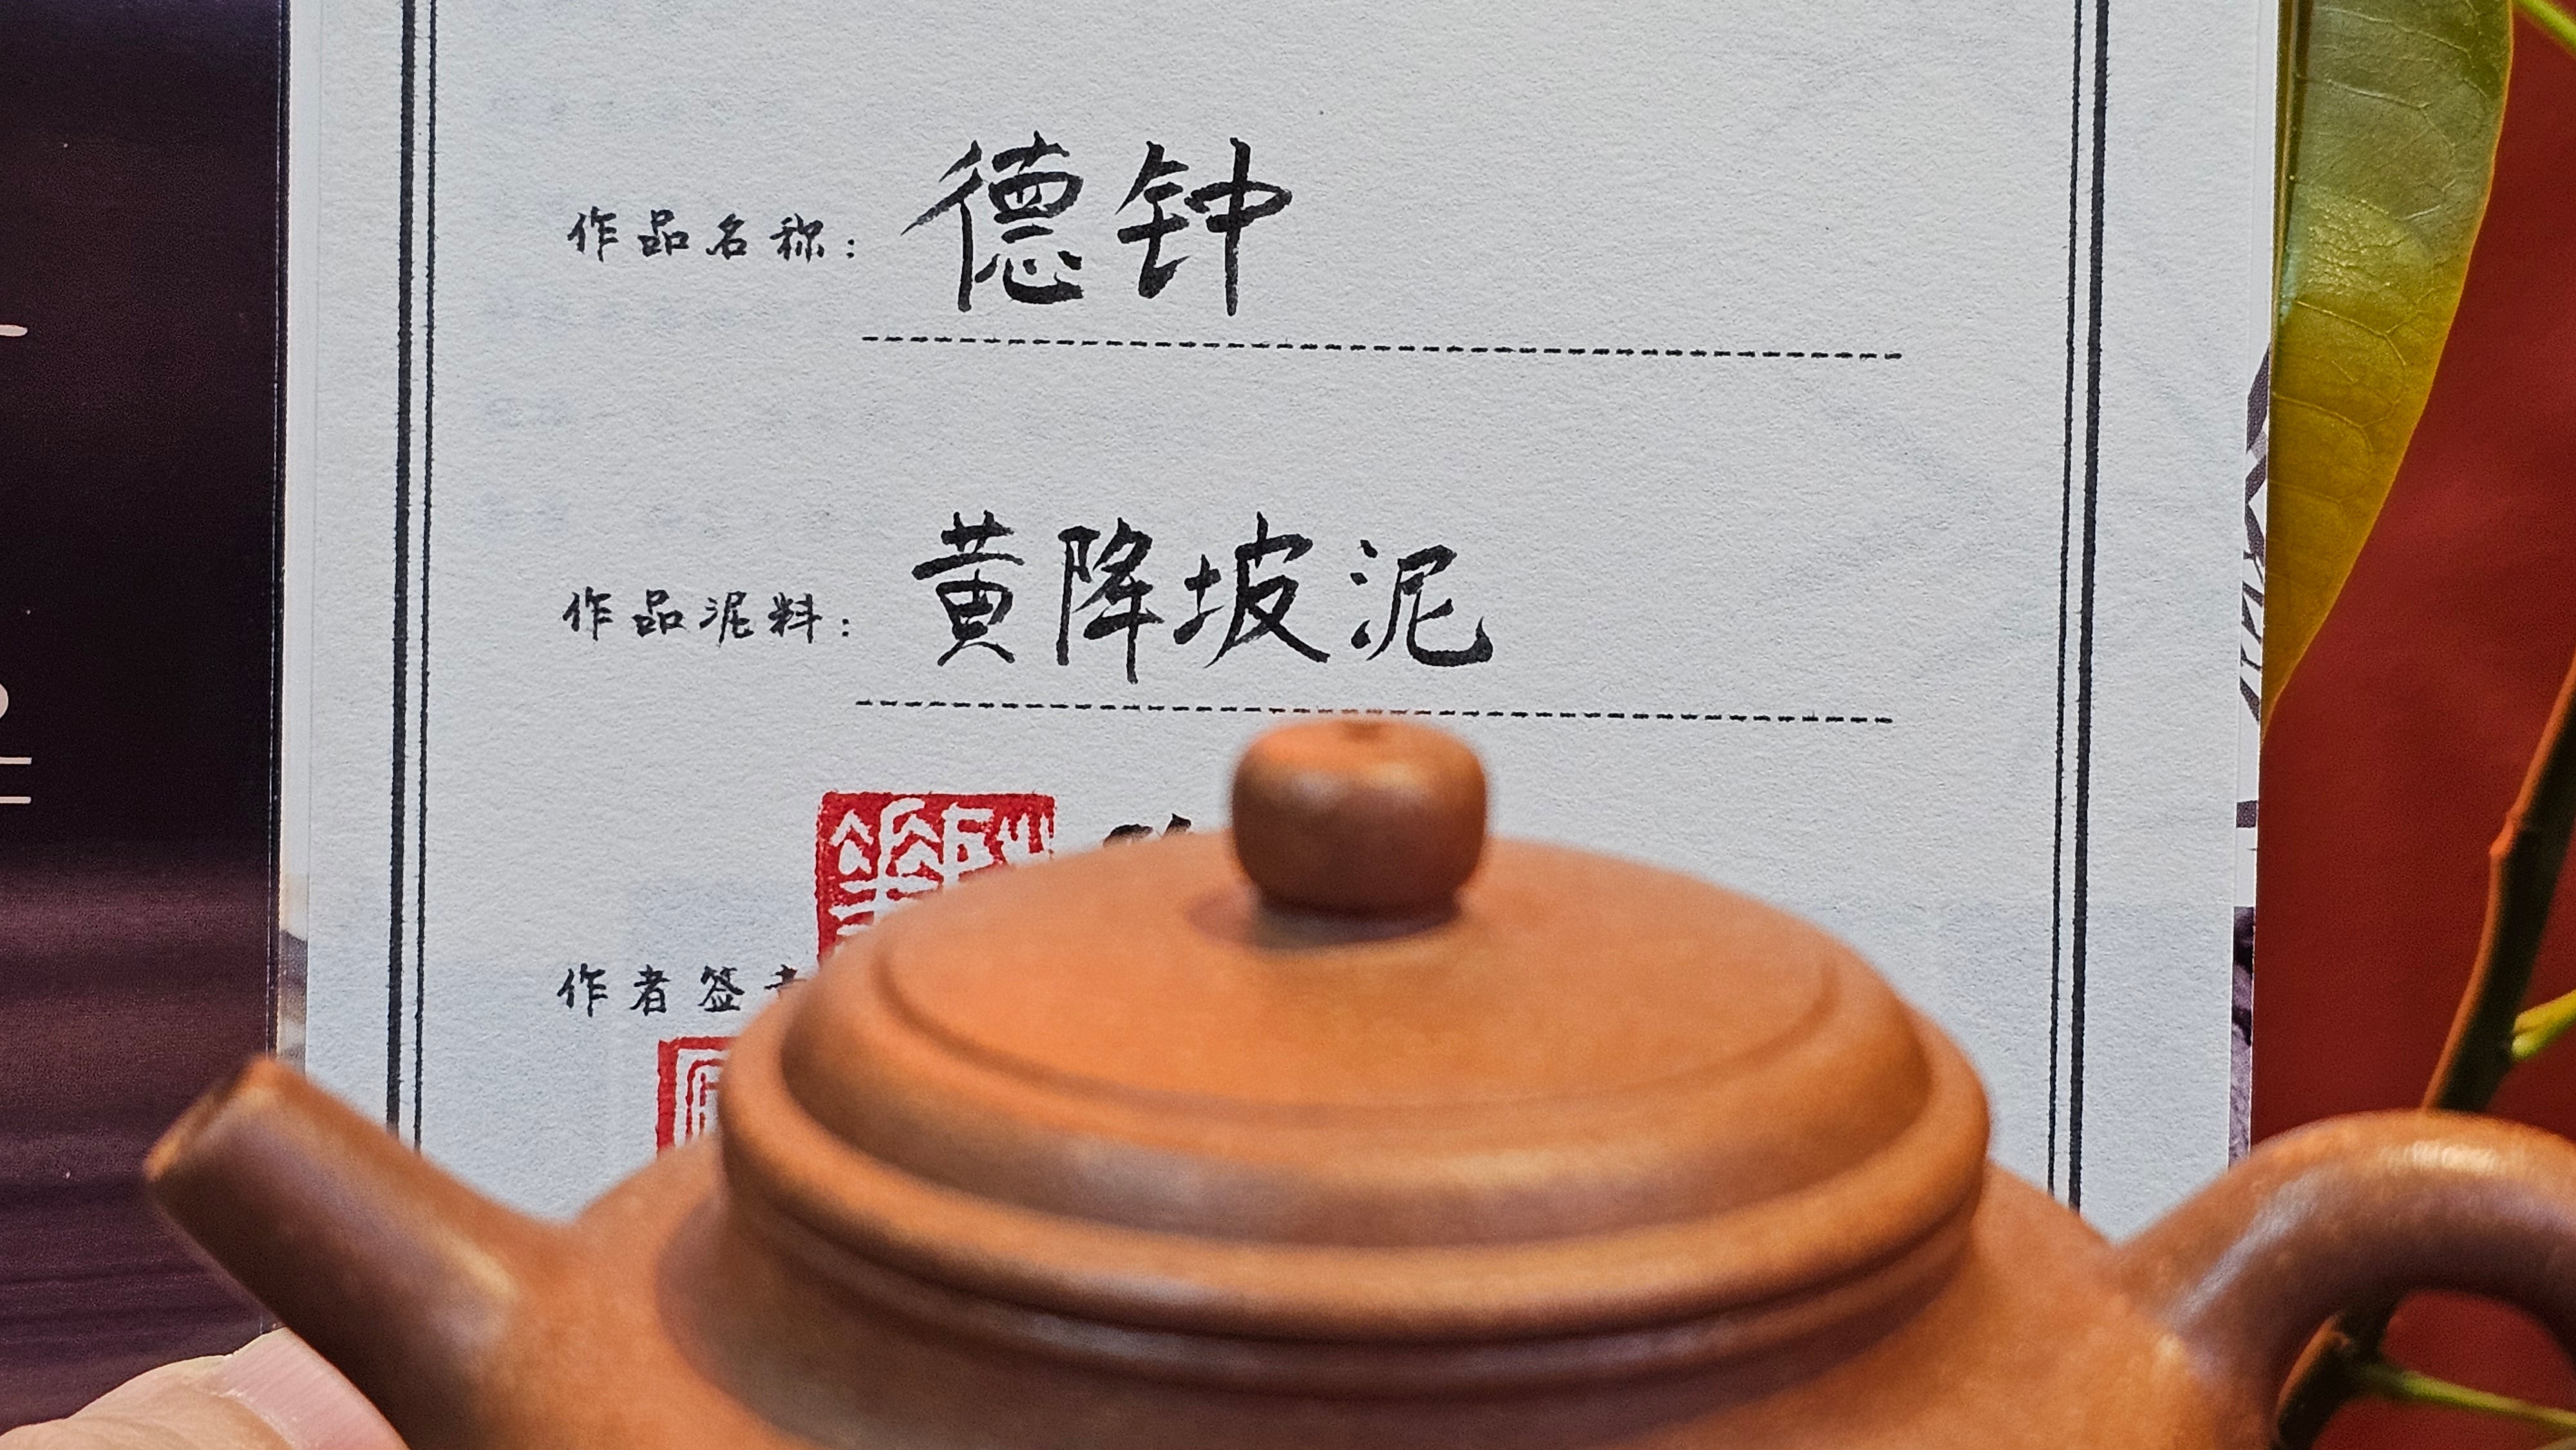 作品名称：德钟
作品泥料：黄降坡泥
作者签